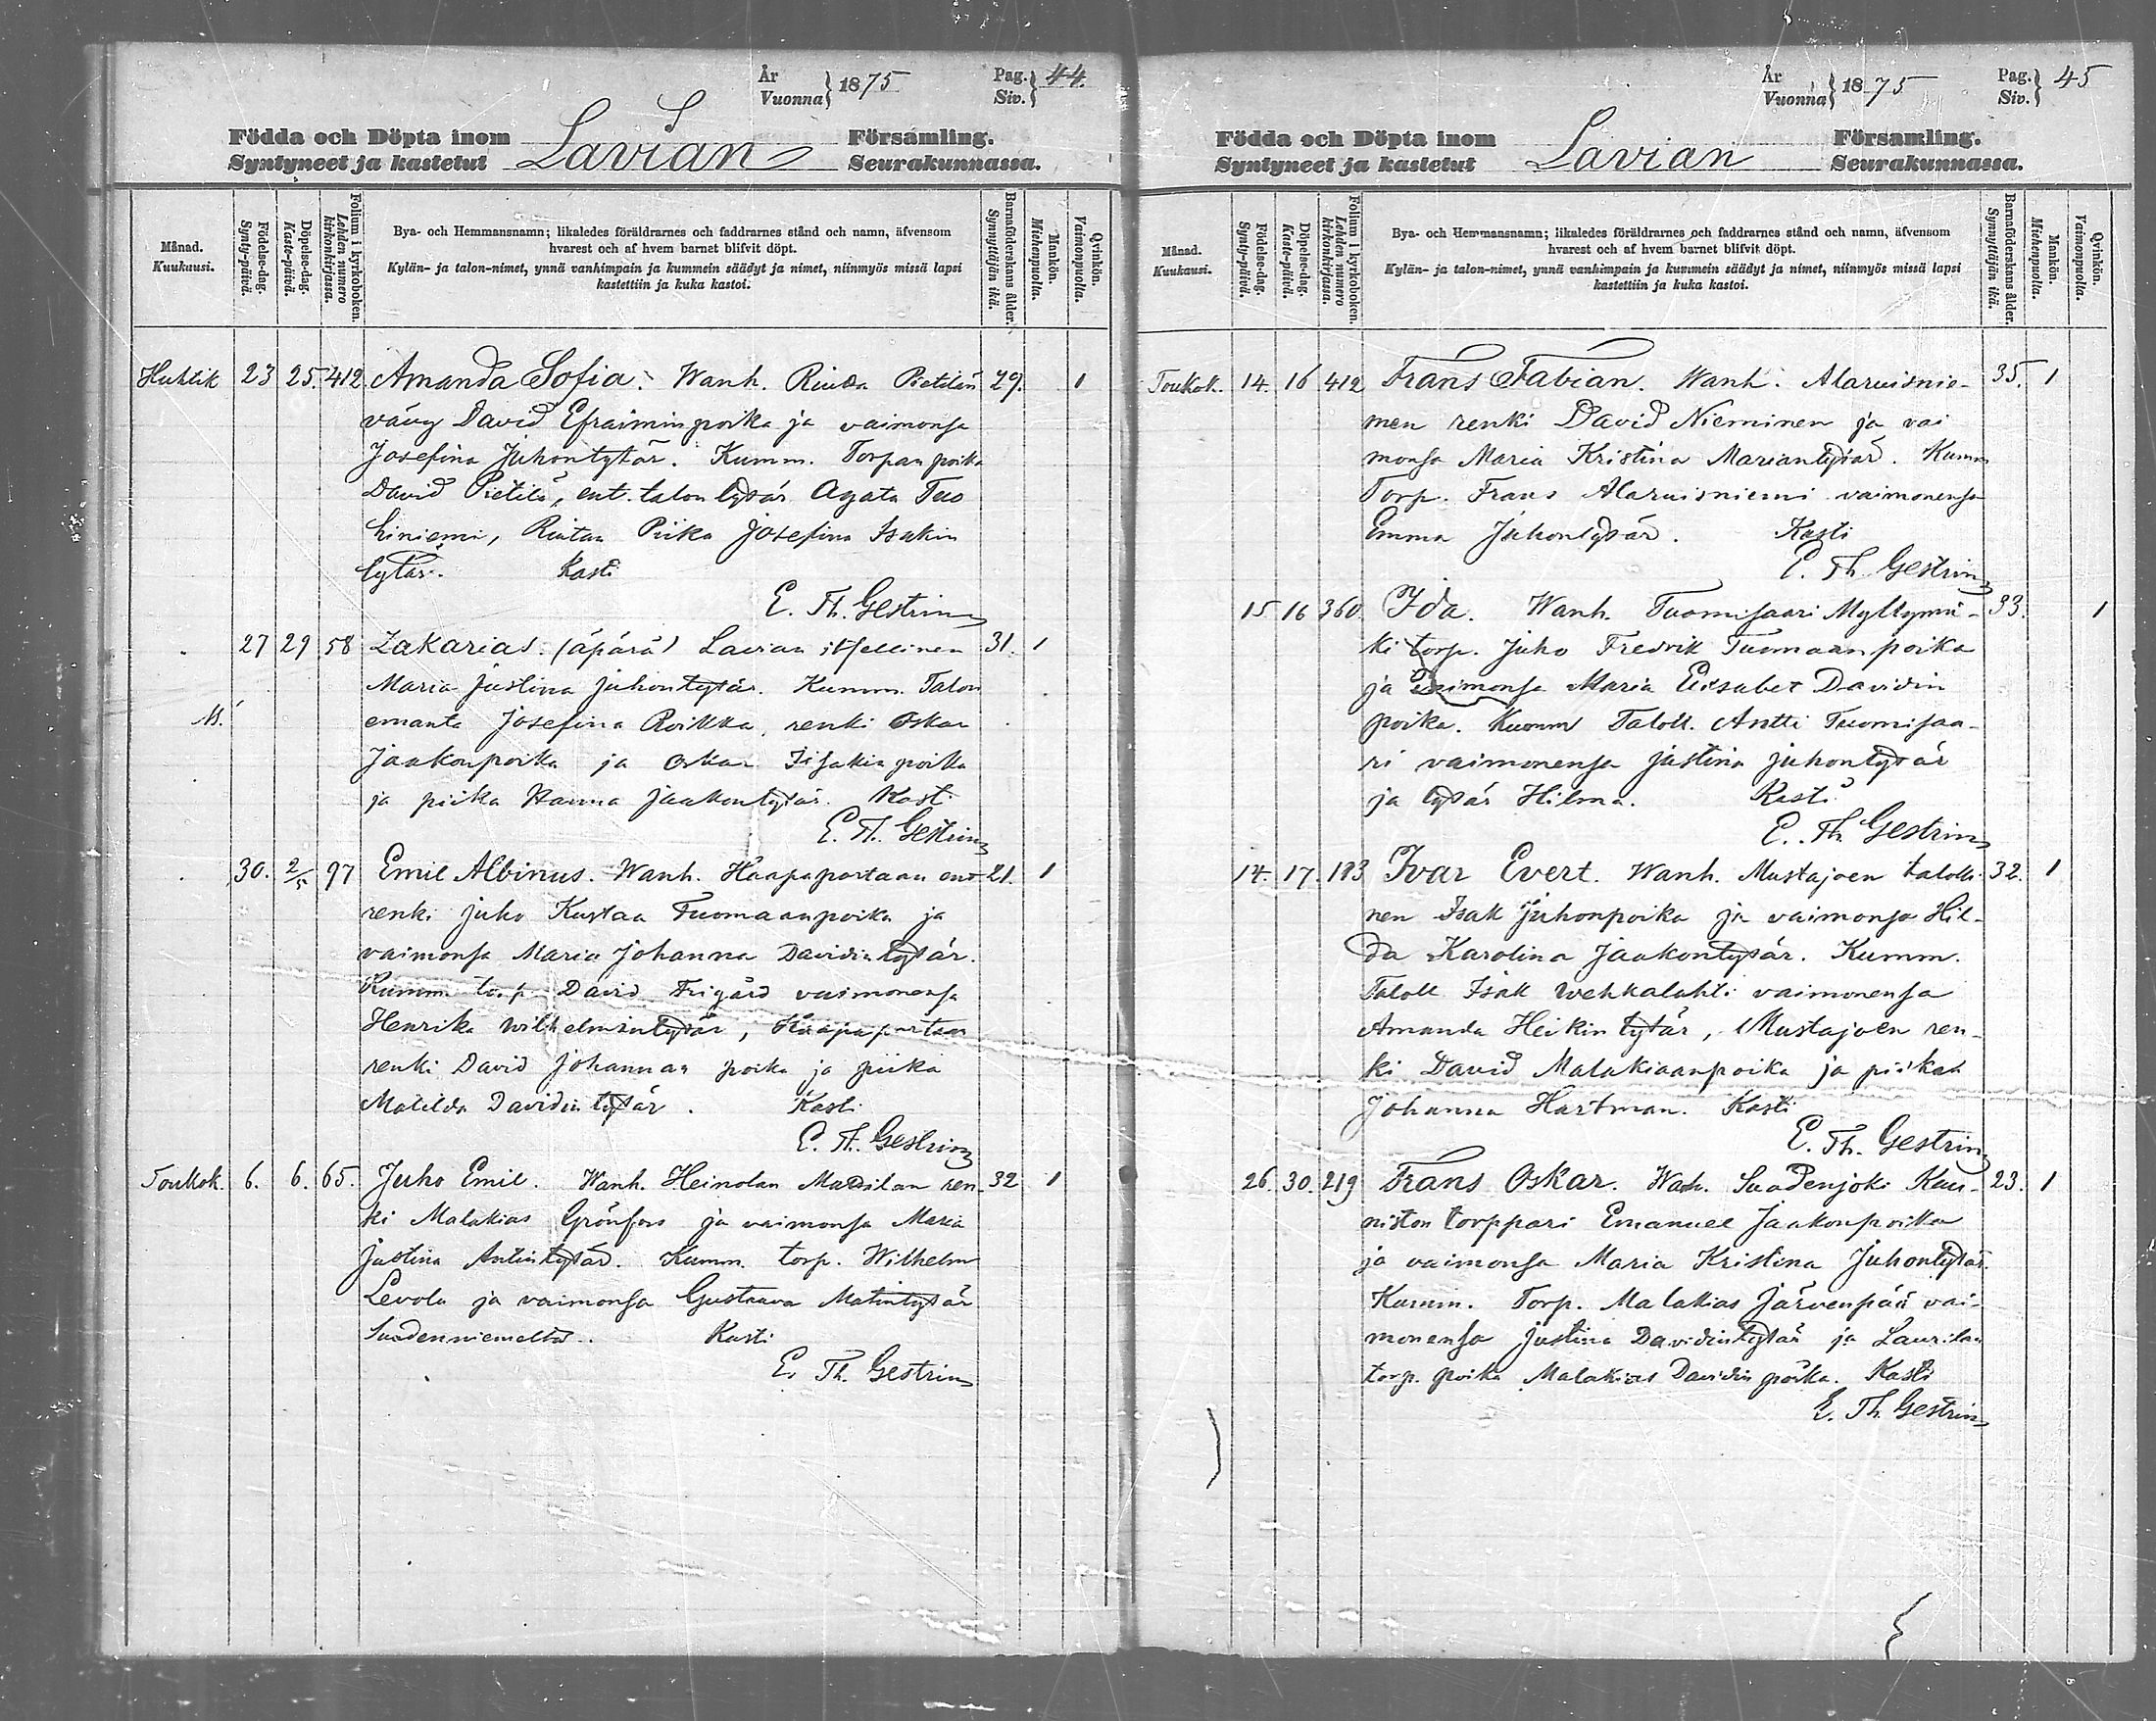 År
Vuonna } 1875
Pag.
Siv. } 44.
Födda och Döpta inom Lavian Församling.
Syntyneet ja kastetut Seurakunnassa.
Månad.
Kuukausi.
Födelse-dag.
Synty-päivä.
Döpelse-dag.
Kaste-päivä.
Folium i kyrkoboken.
Lehden numero
kirkonkirjassa.
Bya- och Hemmansnamn; likaledes föräldrarnes och faddrarnes stånd och namn, äfvensom
hvarest och af hvem barnet blifvit döpt.
Kylän- ja talon-nimet, ynnä vanhimpain ja kummein säädyt ja nimet, niinmyös missä lapsi
kastettiin ja kuka kastoi.
Barnaföderskans ålder.
Synnyttäjän ikä.
Mankön.
Miehenpuolia.
Qvinkön.
Vaimonpuolia.
Huhtik 23 25. 412 Amanda Sofia. Wanh. Rinda Pietilän 29. 1
vävy David Efraiminpoika ja vaimonsa
Josefina Juhontytär. Kumm. Torpan poika
David Pietilä, ent. talon tytär Agata Tuo
hiniemi, Rintan Piika Josefina Isakin
tytär. Kasti
E. Th. Gestrin
27 29 58 Zakarias. (äpärä) Lavian itsellinen 31. 1
Maria Justina Juhontytär. Kumm. Talon
M. emänta Josefina Roikka, renki Oskar
Jaakonpoika ja Oskar Iisakin poika
ja piika Hanna Jaakontytär. Kasti
E. Th. Gestrin
30. 2/5 97 Emil Albinus. Wanh. Haapaportaan ent 21. 1
renki Juho Kustaa Tuomaanpoika ja
vaimonsa Maria Johanna Davidintytär.
Kumm torp David Frigård vaimonensa
Henrika Wilhelmintytär, Haapaportaan
renki David Johannan poika ja piika
Matilda Davidin tytär. Kasti
E. Th. Gestrin
Toukok. 6. 6. 65. Juho Emil. Wanh. Heinolan Mattilan ren- 32 1
ki Malakias Grönfors ja vaimonsa Maria
Justina Antintytär. Kumm. torp. Wilhelm
Levola ja vaimonsa Gustaava Matintytär
Suodenniemeltä. Kasti
E. Th. Gestrin
År
Vuonna } 1875
Pag.
Siv. } 45
Födda och Döpta inom Lavian Församling.
Syntyneet ja kastetut Seurakunnassa.
Månad.
Kuukausi.
Födelse-dag.
Synty-päivä.
Döpelse-dag.
Kaste-päivä.
Folium i kyrkoboken.
Lehden numero
kirkonkirjassa.
Bya- och Hemmansnamn; likaledes föräldrarnes och faddrarnes stånd och namn, äfvensom
hvarest och af hvem barnet blifvit döpt.
Kylän- ja talon-nimet, ynnä vanhimpain ja kummein säädyt ja nimet, niinmyös missä lapsi
kastettiin ja kuka kastoi.
Barnaföderskans ålder.
Synnyttäjän ikä.
Mankön.
Miehenpuolia.
Qvinkön.
Vaimonpuolia.
Toukok. 14. 16 412 Frans Fabian. Wanh. Alaruisnie- 35. 1
men renki David Nieminen ja vai
monsa Maria Kristina Mariantytär. Kumm
Torp. Frans Alaruisniemi vaimonensa
Emma Juhontytär. Kasti
E. Th. Gestrin
15 16 360. Ida. Wanh. Tuomisaari Myllymä- 33. 1
ki torp. Juho Fredrik Tuomaanpoika
ja vaimonsa Maria Elisabet Davidin
poika. Kumm Taloll. Antti Tuomisaa-
ri vaimonensa Justina Juhontytär
ja tytär Hilma. Kasti
E. Th. Gestrin
14. 17. 183 Ivar Evert. Wanh. Mustajoen talolli- 32. 1
nen Isak Juhonpoika ja vaimonsa Hil-
da Karolina Jaakontytär. Kumm.
Taloll Isak Wehkalahti vaimonensa
Amanda Heikin tytär, Mustajoen ren-
ki David Malakiaanpoika ja piikat
Johanna Hartman. Kasti
E. Th. Gestrin
26. 30. 219 Frans Oskar. Wanh. Suodenjoki Kuu- 23. 1
niston torppari Emanuel Jaakonpoika
ja vaimonsa Maria Kristina Juhontytär.
Kumm. Torp. Malakias Järvenpää vai-
monensa Justina Davidintytär ja Laurilan
torp. poika Malakias Davidin poika. Kasti
E. Th. Gestrin